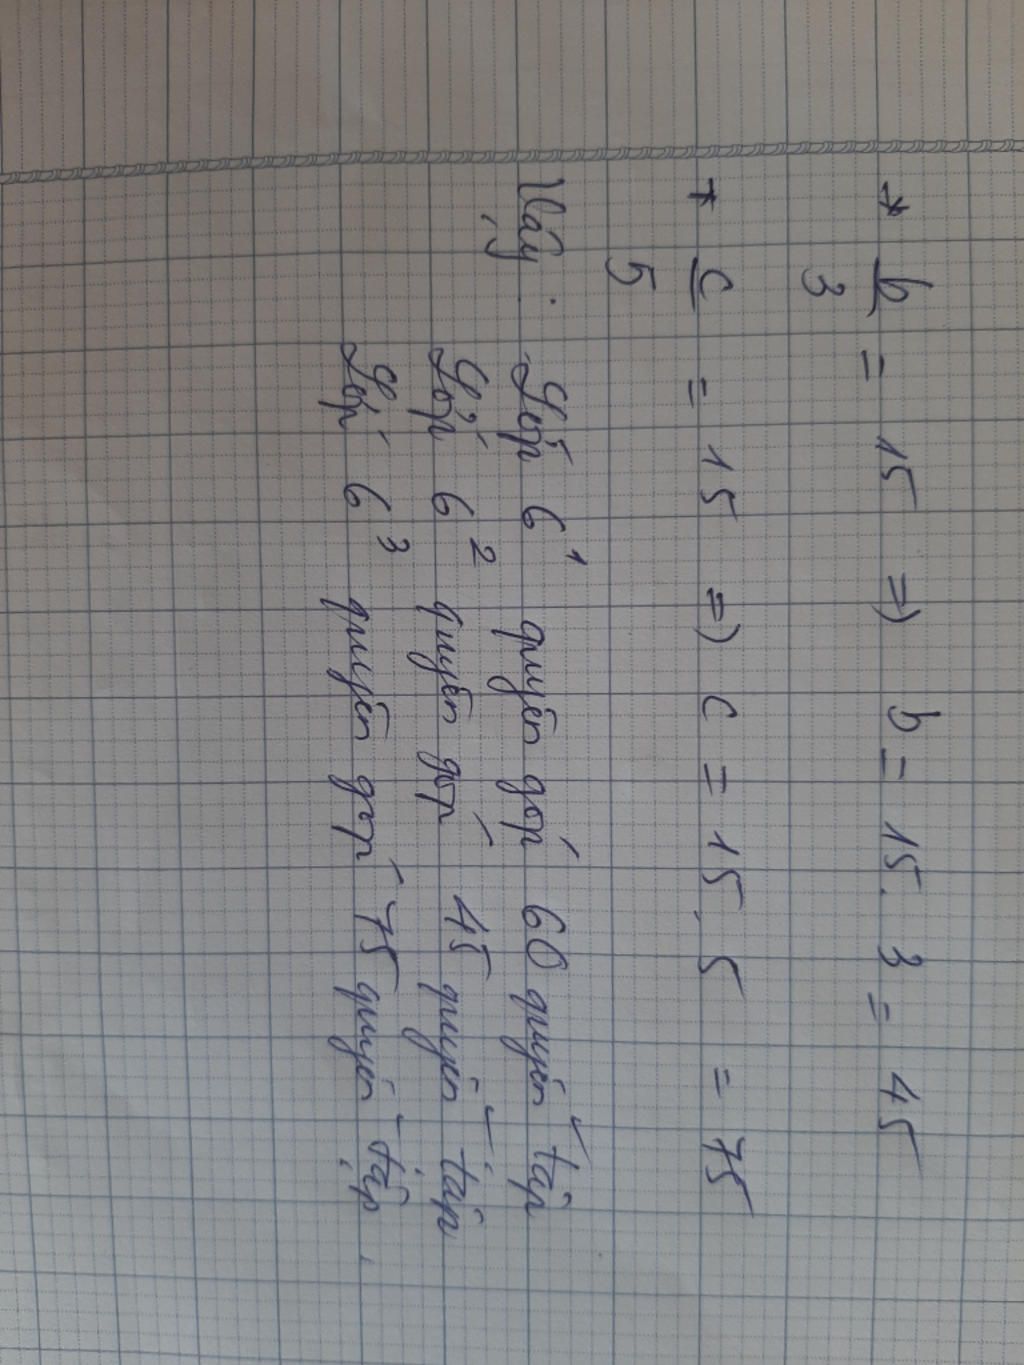 * b/3 = 15 => b = 15.3 = 45
* c/5 = 15 => c = 15.5 = 75
Vậy : Lớp 6¹ quyên góp 60 quyển tập
Lớp 6² quyên góp 45 quyển tập
Lớp 6³ quyên góp 75 quyển tập.